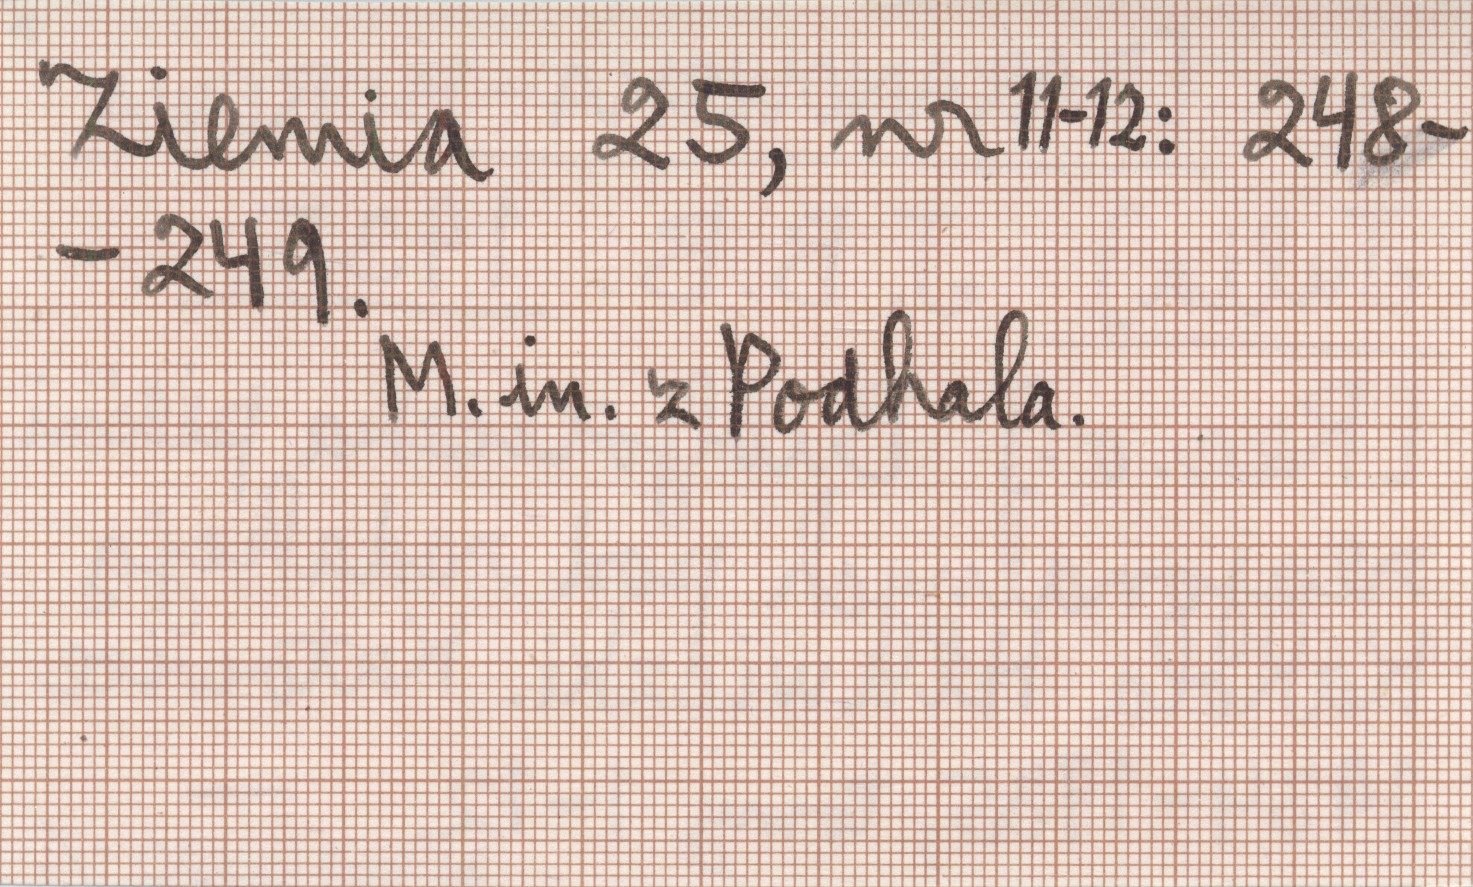 Ziemia 25, nr 11-12: 248-
- 249.
M. in. z Podhala.